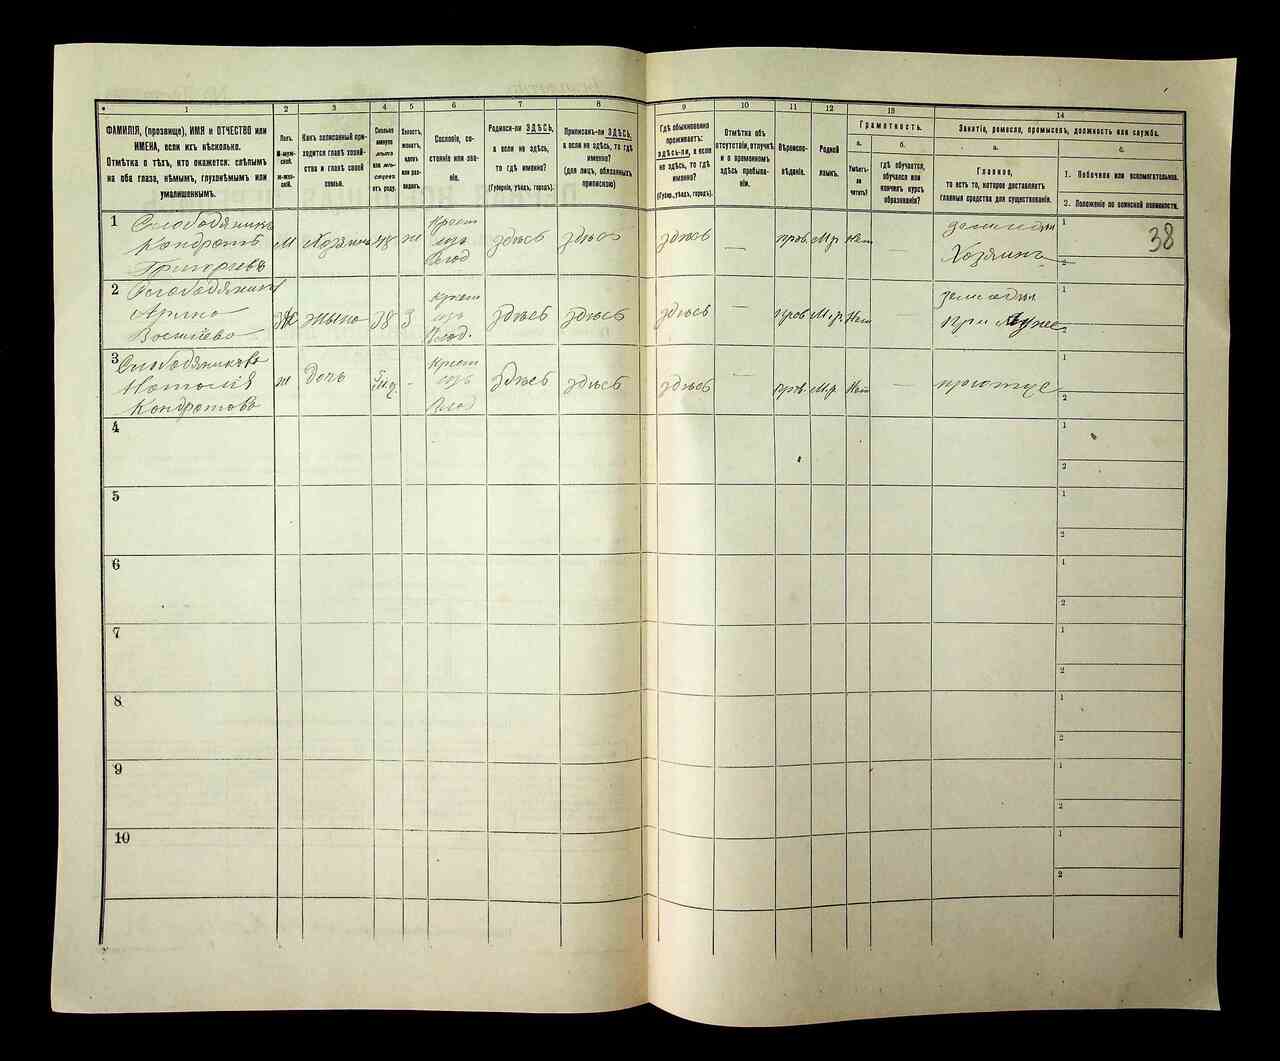 1
2
3
4
5
6
7
8
9
10
11
12
13
14
ФАМИЛІЯ, (прозвище), ИМЯ и ОТЧЕСТВО или
ИМЕНА, если ихъ нѣсколько.
Отмѣтка о тѣхъ, кто окажется: слѣпымъ
на оба глаза, нѣмымъ, глухонѣмымъ или
умалишеннымъ.
Полъ.
М-муж-
ской.
Ж-жен-
скій.
Какъ записанный при-
ходится главѣ хозяй-
ства и главѣ своей
семьи.
Сколько
минуло
лѣтъ
или мѣ-
сяцевъ
отъ роду.
Холостъ,
женатъ,
вдовъ
или раз-
веденъ.
Сословіе, со-
стояніе или зва-
ніе.
Родился-ли ЗДѢСЬ,
а если не здѣсь,
то гдѣ именно?
(Губернія, уѣздъ, городъ).
Приписанъ-ли ЗДѢСЬ,
а если не здѣсь, то гдѣ
именно?
(для лицъ, обязанныхъ
припискою)
Гдѣ обыкновенно
проживаетъ:
здѣсь-ли, а если
не здѣсь, то гдѣ
именно?
(Губер., уѣздъ, городъ).
Отмѣтка объ
отсутствіи, отлучкѣ
и о временномъ
здѣсь пребыва-
ніи.
Вѣроиспо-
вѣданіе.
Родной
языкъ.
Грамотность.
а.
Умѣетъ-
ли
читать?
б.
гдѣ обучается,
обучался или
кончилъ курсъ
образованія?
Занятіе, ремесло, промыселъ, должность или служба.
а.
Главное,
то есть то, которое доставляетъ
главныя средства для существованія.
б.
1. Побочное или вспомогательное.
2. Положеніе по воинской повинности.
38
1
Кондратъ
Григорьевъ
М
Хозяинъ
48
ж
Крест
изъ
здѣсь
здѣсь
здѣсь
—
прав.
М.р.
Нет
Хозяинъ
1
2
2
Ж
жена
38
3
Крест
изъ
здѣсь
здѣсь
здѣсь
—
прав
М.р
Нет
—
при муже
1
2
3 Слободяникова
Наталія
Кондратова
ж
дочь
-
Крест
изъ
здѣсь
здѣсь
здѣсь
—
прав.
М.р.
Нет
—
при отце
1
2
4
1
2
5
1
2
6
1
2
7
1
2
8
1
2
9
1
2
10
1
2